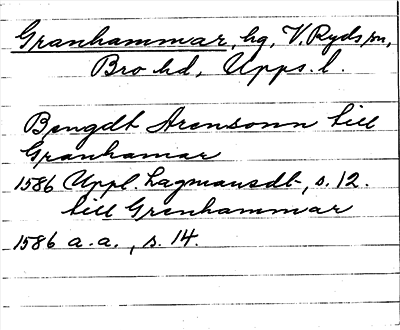 Granhammar, hg, V. Ryds sn,
Bro hd, Upps. l.
Bengdt Arensonn till
Granhamar
1586 Uppl. Lagmansdb., s. 12.
till Grenhammar
1586 a.a., s. 14.